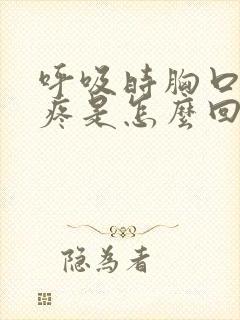 呼吸時胸口
疼是怎麼回
隐為者